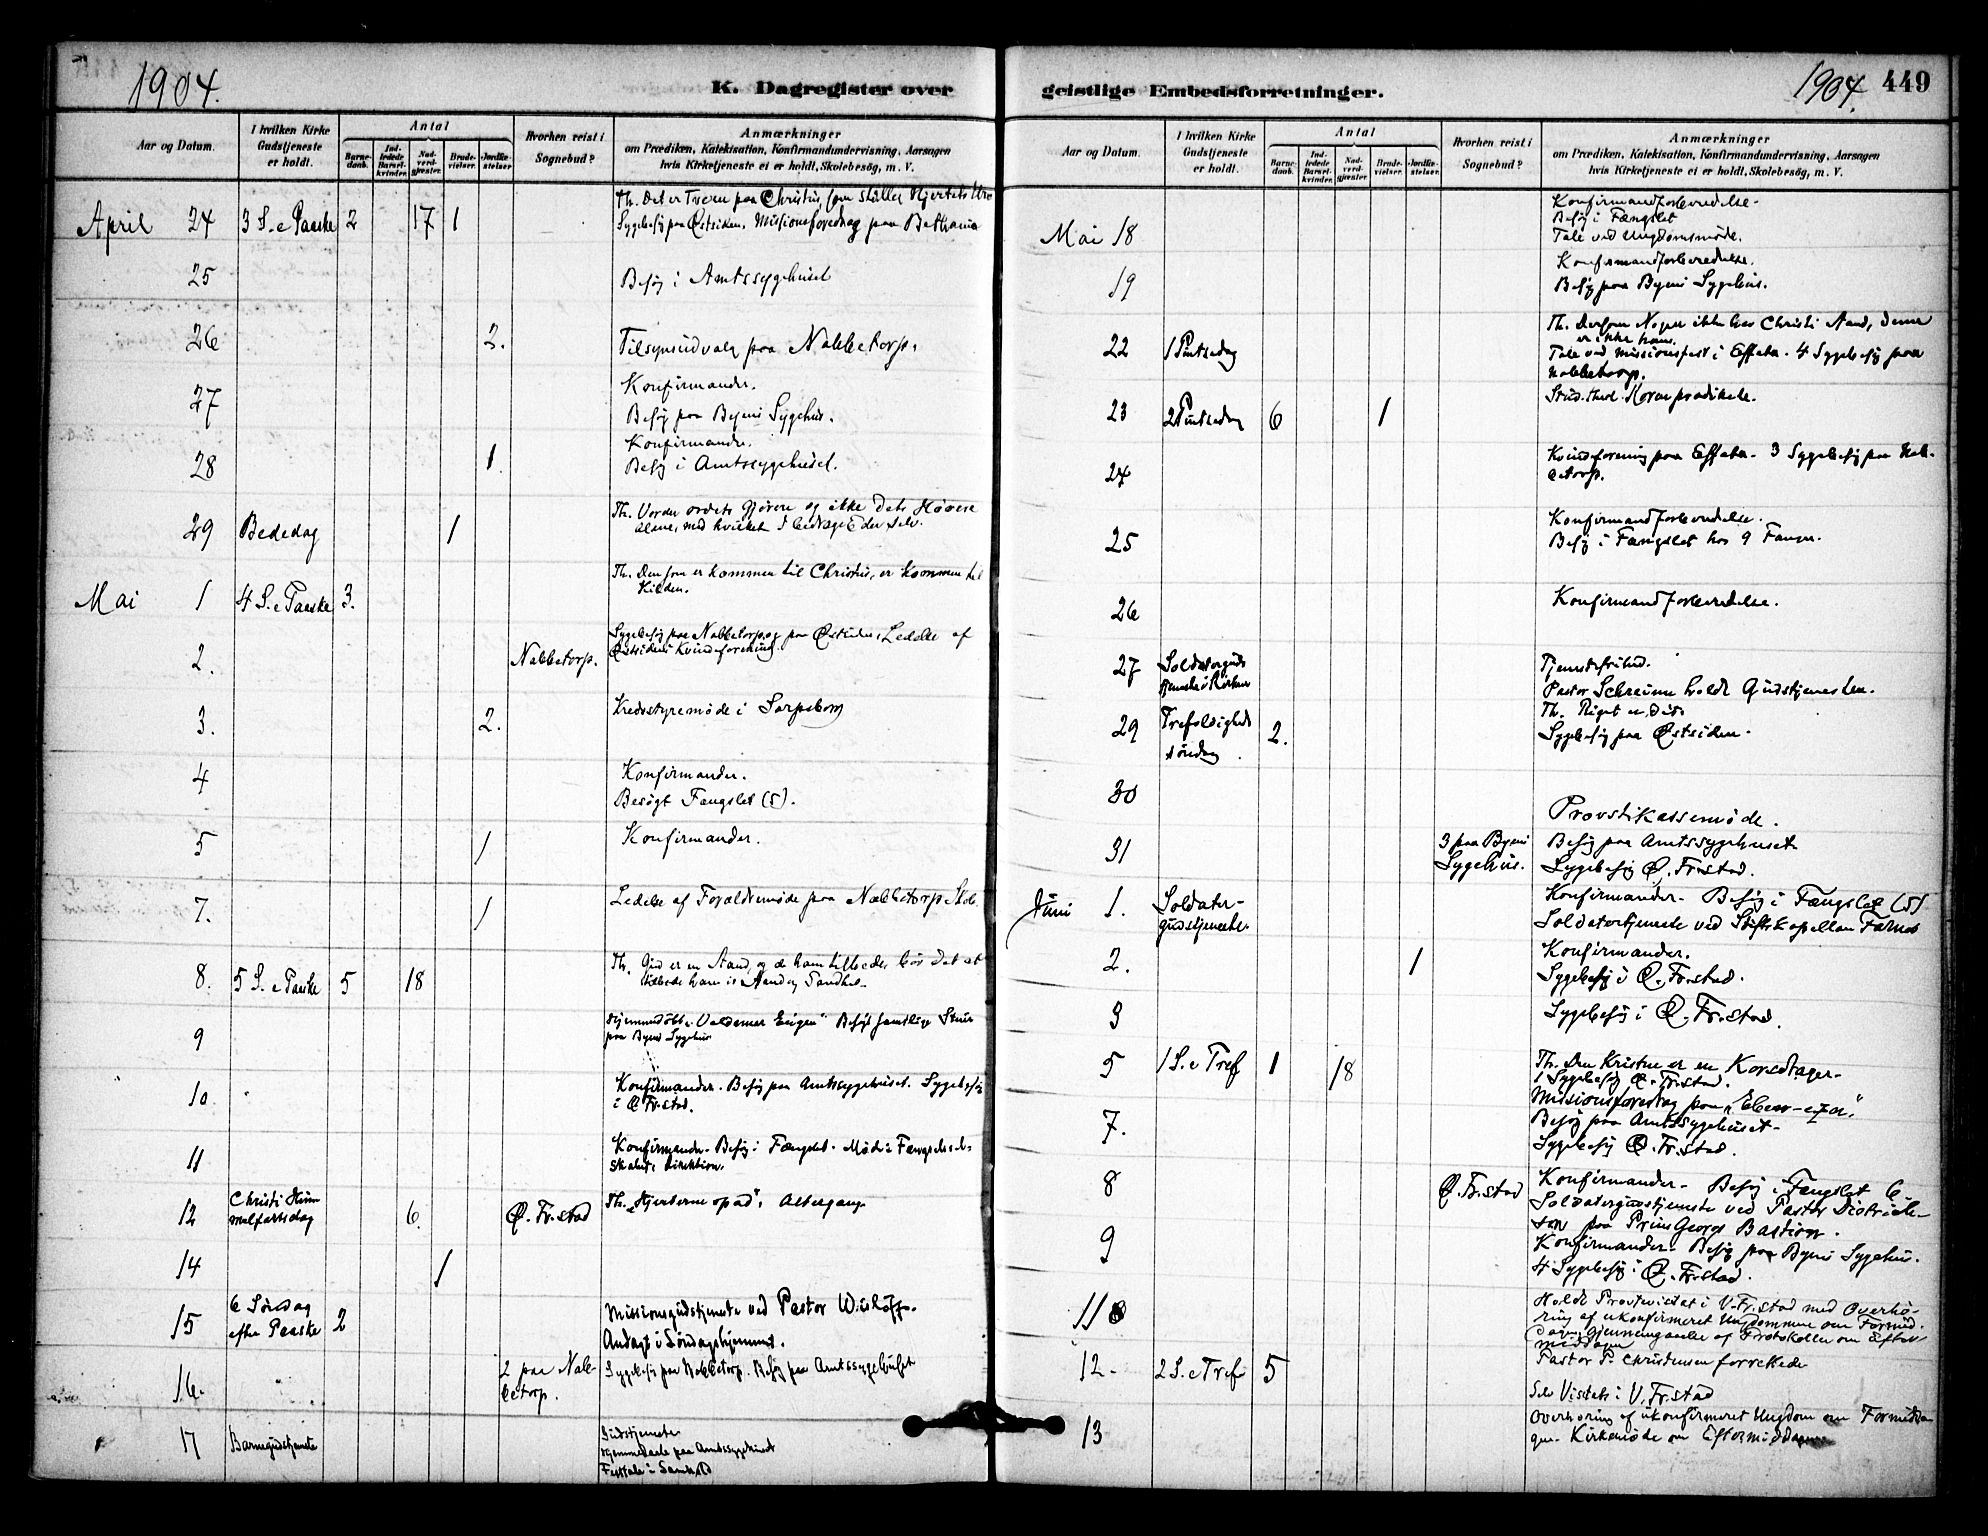 1904.
K. Dagregister over
Aar og Datum.
I hvilken Kirke
Gudstjeneste
er holdt.
Antal
Barne-
daab.
Ind-
ledede
Barsel-
kvinder.
Nad-
verd-
gjæster.
Brude-
vielser.
Jordfæ-
stelser.
Hvorhen reist i
Sognebud?
Anmærkninger
om Prædiken, Katekisation, Konfirmandundervisning, Aarsagen
hvis Kirketjeneste ei er holdt, Skolebesøg, m. V.
Th. Det er Troen paa Christus, som stiller Hjertets
April 24 3 S. e Paaske 2 17 1 Sygebesøg paa Østsiden. Missionsforedrag paa Bethania
25 Besøg i Amtssygehuset
26 2. Tilsynsudvalg paa Nabbetorp.
27 Konfirmander.
Besøg paa Byens Sygehus.
28 1. Konfirmander.
Besøg i Amtssygehuset.
29 Bededag 1 Th. Vorder ordets Gjørere og ikke dets Hørere
alene, med hvilket I bedrage Eder selv.
Mai 1 4 S. e Paaske 3. Th. Den som er kommen til Christus, er kommen til
Kilden.
2. Nabbetorp. Sygebesøg paa Nabbetorp og paa Østsiden. Ledelse af
Østsidens Kvindeforening.
3. 2. Kredsstyremøde i Sarpsborg
4 Konfirmander.
Besøgt Fængslet (5).
5 1 Konfirmander.
7. 1 Ledelse af Forældremøde paa Nabbetorp Skole.
8. 5 S. e Paaske 5 18 Th. Gud er en Aand, og de ham tilbeder bør det at
tilbede ham i Aand og Sandhed.
9 Hjemmedøbt Valdemar Besøgt samtlige Stuer
paa Byens Sygehus
10. Konfirmander. Besøg paa Amtssygehuset. Sygebesøg
i Ø Fr.stad.
11 Konfirmander. Besøg i Fængslet. Møde i Fængselsel-
skabets Direktion.
12 Christi Him
melfartsdag 6. Ø. Fr.stad Th. "Hjerterne opad". Altergang
14 1
15 6 Søndag
efter Paaske 2 Missionsgudstjeneste ved Pastor Wisløff.
Andagt i Søndagshjemmet.
16. 2 paa Nab-
betorp. Sygebesøg paa Nabbetorp. Besøg paa Amtssygehuset
17 Barnegudstjeneste Gudstjeneste
Hjemmedaab paa Amtssygehuset
Festtale i
1904. 449
geistlige Embedsforretninger.
Aar og Datum.
I hvilken Kirke
Gudstjeneste
er holdt.
Antal
Barne-
daab.
Ind-
ledede
Barsel-
kvinder.
Nad-
verd-
gjæster.
Brude-
vielser.
Jordfæ-
stelser.
Hvorhen reist i
Sognebud?
Anmærkninger
om Prædiken, Katekisation, Konfirmandundervisning, Aarsagen
hvis Kirketjeneste ei er holdt, Skolebesøg, m. V.
Mai 18 Konfirmandforberedelse.
Besøg i Fængslet
Tale ved Ungdomsmøde.
19 Konfirmandforberedelse.
Besøg paa Byens Sygehus.
22 1 Pintsedag Th. Dersom Nogen ikke har Christi Aand, denne
er ikke hans.
Tale ved Missionsfest i Effata. 4 Sygebesøg paa
Nabbetorp.
23 2 Pintsedag 6 1 Stud. theol. Horne prædikede.
24 Kvindeforening paa Effata. 3 Sygebesøg paa Nab-
betorp.
25 Konfirmandforberedelse.
Besøg i Fængslet hos 9 Fanger.
26 Konfirmandforberedelse.
27 Soldaterguds
tjeneste i Kirken Tjenestefrihed.
Pastor Schreiner holdt Gudstjenesten.
29 Trefoldigheds
søndag 2. Th. Riget er dit.
Sygebesøg paa Østsiden.
30 Provstikassemøde.
31 3 paa Byens
Sygehus. Besøg paa Amtssygehuset
Sygebesøg Ø. Fr.stad.
Juni 1. Soldater-
gudstjeneste. Konfirmander. Besøg i Fængslet (5)
Soldatertjeneste ved Stiftskapellan
2. 1 Konfirmander.
Sygebesøg i Ø. Fr.stad.
3 Sygebesøg i Ø. Fr.stad.
5 1 S. e Tref 1 18 Th. Den Kristne er en Korsdrager.
1 Sygebesøg Ø. Fr.stad.
Missionsforedrag paa "Eben-ezer."
7. Besøg paa Amtssygehuset.
Sygebesøg Ø. Fr.stad.
8 Ø. Fr.stad Konfirmander. Besøg i Fængslet 6.
Soldatergudstjeneste ved Pastor Didrich-
sen paa Prins Georgs Bastion.
9 Konfirmander. Besøg paa Byens Sygehus.
4 Sygebesøg i Ø. Fr.stad.
11 Holdt Provstevisitats i V. Fr.stad med Overhø-
ring af ukonfirmeret Ungdommen om Formid-
dagen, Gjennemgaaelse af Protokoller om Efter-
middagen
12. 2 S. e Tref 5 Pastor P. Christensen forrettede
13 Selv Visitats i V. Fr.stad
Overhøring af ukonfirmeret Ungdom om Formidda-
gen. Kirkemøde om Eftermiddagen